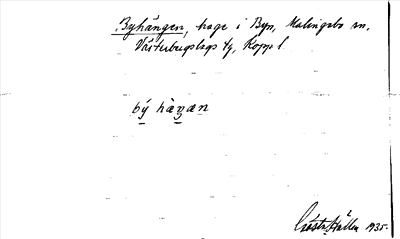 Byhängen, hage i Byn, Malingsbo sn,
Västerbergslags tg, Kopp. l.
bý hàŋæn
Gösta Hållen 1935.